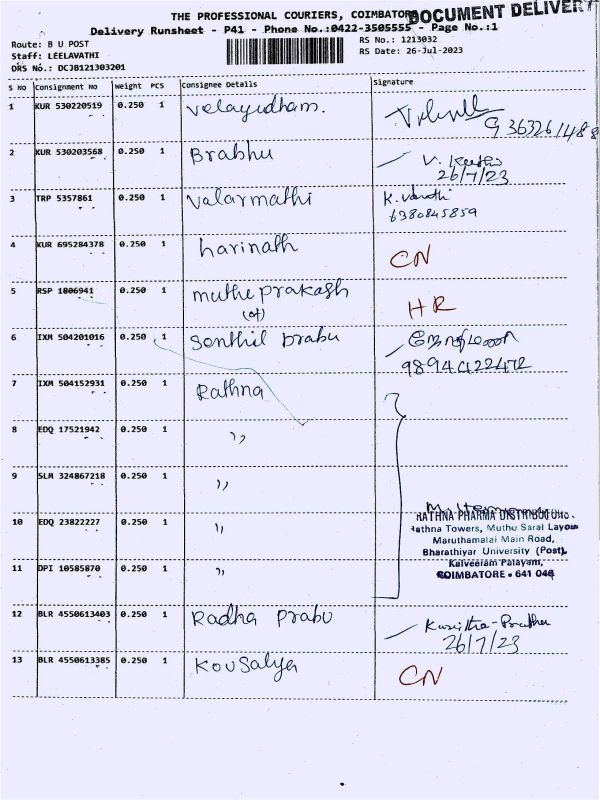 THE PROFESSIONAL COURIERS, COIMBATORE
DOCUMENT DELIVERY
Delivery Runsheet - P41 - Phone No.:0422-3505555 - Page No.:1
Route: B U POST
RS No.: 1213032
Staff: LEELAVATHI
RS Date: 26-Jul-2023
DRS No.: DCJB121303201
S No Consignment No Weight PCS Consignee Details Signature
1 KUR 530220519 0.250 1 Velayudham.
9363261488
2 KUR 530203568 0.250 1 Brabhu
26/7/23
3 TRP 5357861 0.250 1 Valarmathi
6380845859
4 KUR 695284378 0.250 1 harinath CN
5 RSP 1806941 0.250 1 muthu prakash HR
6 IXM 504201016 0.250 1 Senthil prabu
7 IXM 504152931 0.250 1 Rathna
8 EDQ 17521942 0.250 1 ,,
9 SLM 324867218 0.250 1 ,,
10 EDQ 23822227 0.250 1 ,,
RATHNA PHARMA DISTRIBUTORS.
Rathna Towers, Muthu Saral Layout
Maruthamalai Main Road,
Bharathiyar University (Post),
Kalveeram Palayam,
COIMBATORE - 641 046
11 DPI 10585870 0.250 1 ,,
12 BLR 4550613403 0.250 1 Radha prabu
26/7/23
13 BLR 4550613385 0.250 1 Kousalya CN